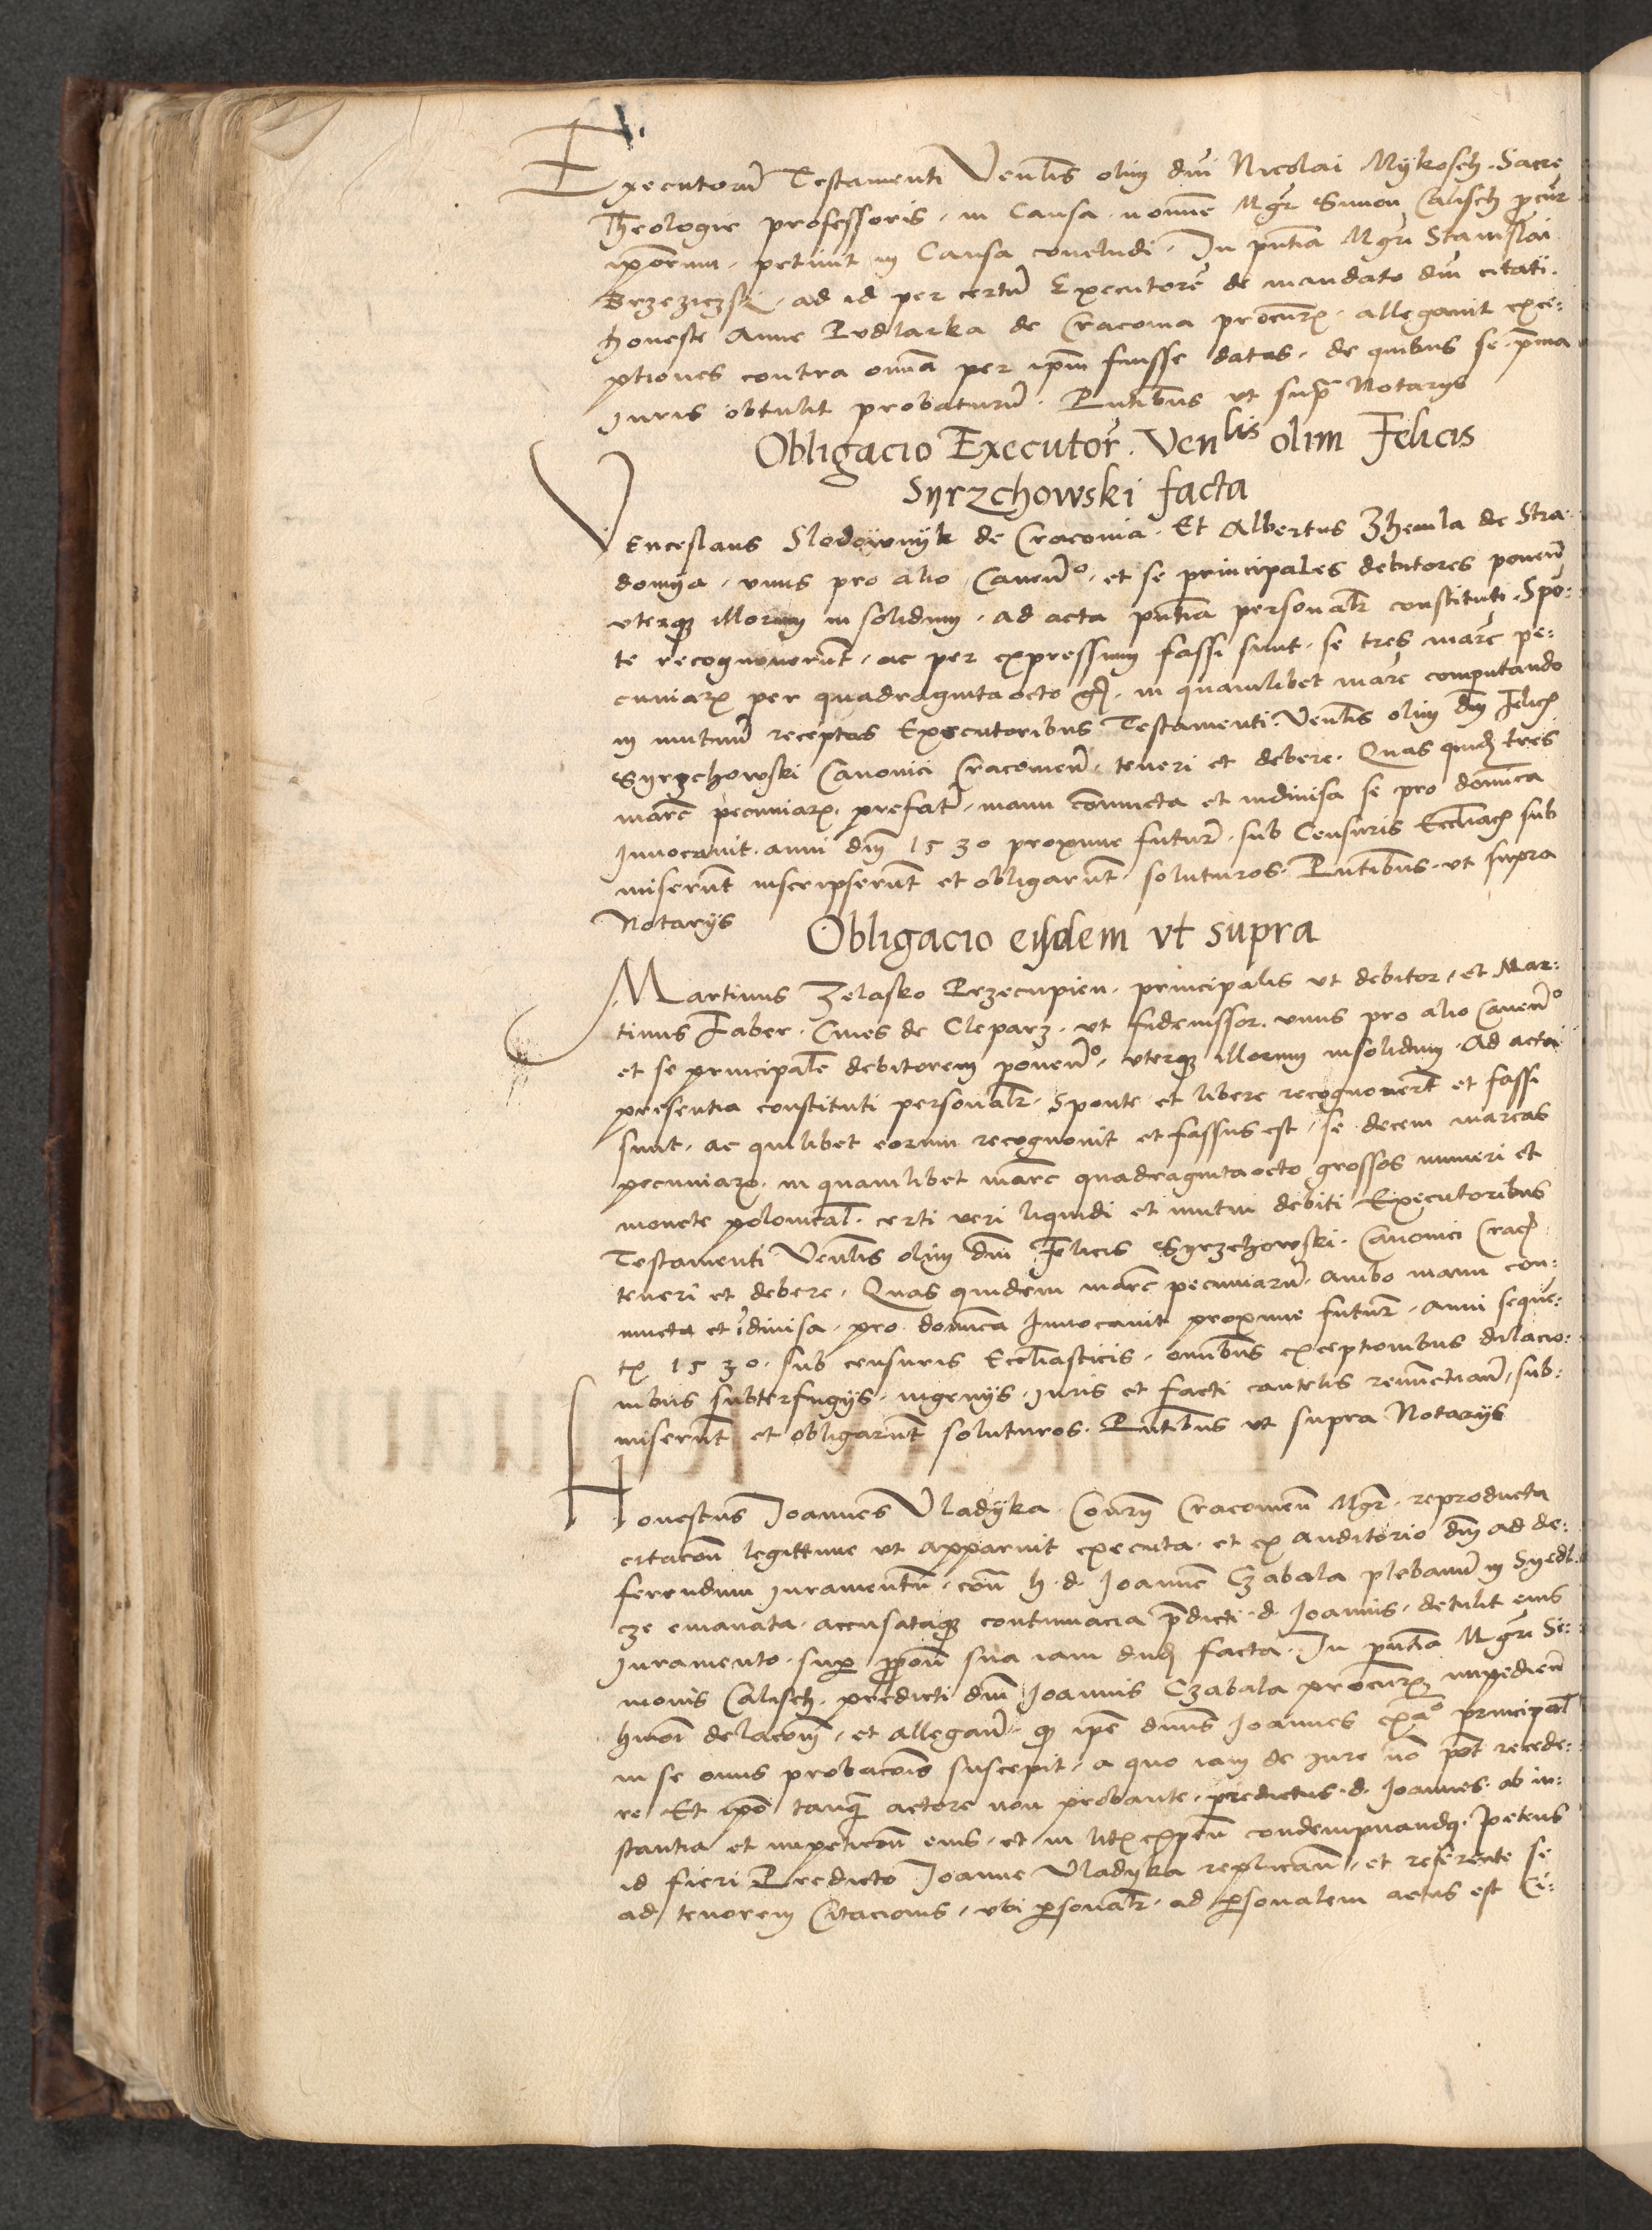 Executorum Testamenti Venlis olim dni Nicolai Mykosch. Sacre
Theologie professoris. in Causa. nomine Mgr Simon Calisch procur
ipsorum. petiuit in Causa concludi. In pntia Mgri Stanislai
Brzeziczski. ad id per certum Executore de mandato dni citati.
honeste Anne Rudlarka de Cracouia procurx. allegauit exce:
ptiones contra omnia per ipm fuisse datas. de quibus se prima
iuris obtulit probaturum. Pntibus vt supra Notarijs
Obligacio Executor. Venlis olim Felicis
Syrzchowski facta
Venceslaus Slodownyk de Cracouia. Et Albertus Zhemla de Stra
domya. vnus pro alio Cauen°. et se principales debitores ponen
vterque illorum in solidum. ad acta pntia personalr constituti. Spo:
te recognouerunt. ac per expressum fassi sunt. se tres marc pe:
cuniarx per quadragintaocto gr. in quamlibet marc computando
in mutuum receptas Executoribus Testamenti. Venlis olim dni Felicis
Syrzchowski Canonici Cracouien. teneri et debere. Quas quidem tres
marc pecuniarx. prefati. manu coniuncta et indiuisa se pro dominica
Inuocauit. anni dni 1530 proxime futur. sub Censuris Eccliacis sub
miserunt inscripserunt et obligarunt soluturos. Pntibus. vt supra
Notarijs
Obligacio eisdem vt supra
Martinus Zelasko Przecupien. principalis vt debitor. et Mar:
tinus Faber. Ciues de Cleparz. vt fideiussor. vnus pro alio Cauen°
et se principale debitorem ponen°. vterque illorum insolidum. Ad acta
presentia constituti personalr. Sponte et libere recognouerunt et fassi
sunt. ac quilibet eorum recognouit et fassus est. se decem marcas
pecuniarx. in quamlibet marc quadragintaocto grossos numeri et
monete polonical. certi veri liquidi et mutui debiti Executoribus
Testamenti Venlis olim dni Felicis Syrzchowski. Canonici Crac
teneri et debere. Quas quidem marc pecuniarum. ambo manu con:
iuncta et idiuisa. pro dominica Inuocauit proxime futur. anni seque:
tx 1530. sub censuris Eccliasticis. omnibus exceptionibus dilacio:
nibus subterfugijs. ingenijs. iuris et facti cautelis renunctian. sub:
miserunt et obligarunt soluturos. Pntibus vt supra Notarijs
Honestus Joannes Vladyka. Cracouien Mgr. reproducta
citacon legittime vt apparuit executa. et ex auditorio dni ad de:
ferendum iuramentum. con h. d. Joanne Czabala plebanum in Syedl
cze emanata. accusataque contumacia predicti. d. Joannis. detulit eius
Iuramento. super sua iam dudum facta. In pntia Mgri Si:
monis Calisch. predicti dni Joannis Czabala procurx impedien
hmoi delaconi. et allegan. quod ipse dnus Joannes principal
in se onus probaconis suscepit. a quo iam de iure non pot recede:
re. Et ipso tanquam actore non probante. predictus. d. Joannes. ab in:
stantia et impeticon eius. et in litx expen condempnandus. Petens
id fieri Predicto Joanne Vladyka replican. et referente se
ad tenorem Citacionis. vbi personalr. ad personalem actus est Ci: